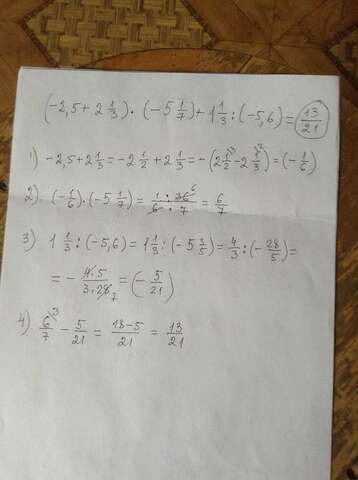 (-2,5+2 1/3)·(-5 1/7)+1 1/3:(-5,6)=13/21
1) -2,5+2 1/3=-2 1/2+2 1/3=-(2 1/2^3-2 1/3^2)=(-1/6)
2) (-1/6)·(-5 1/7)=1·36^6/6·7=6/7
3) 1 1/3:(-5,6)=1 1/3:(-5 3/5)=4/3:(-28/5)=
=-4·5/3·28_7=(-5/21)
4) 6^3/7-5/21=18-5/21=13/21